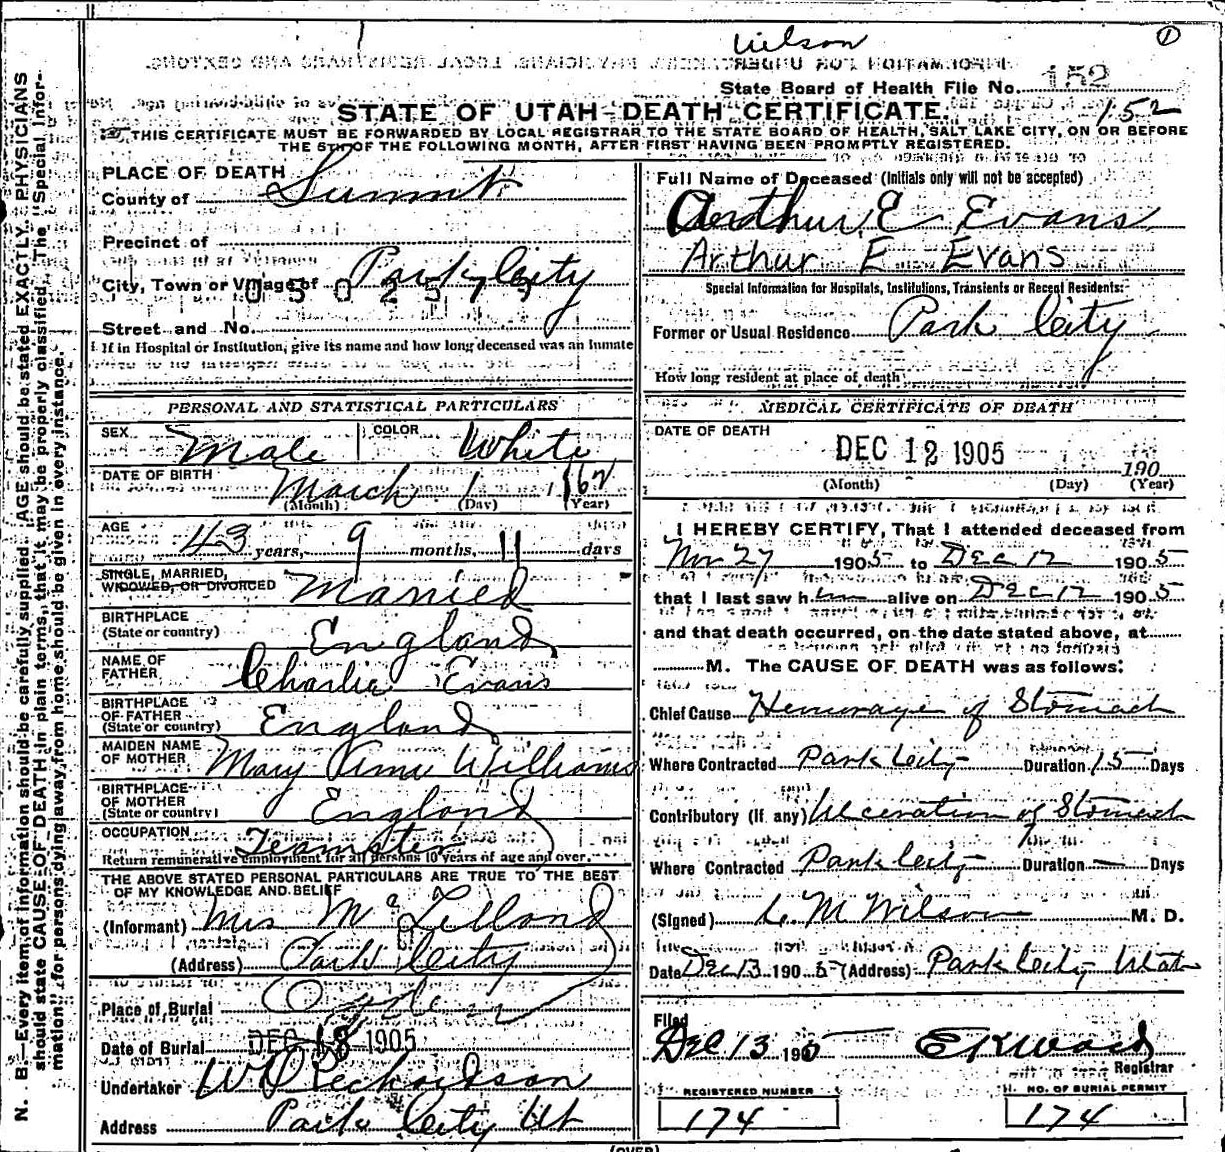 Wilson
1
State Board of Health File No. 152
152
STATE OF UTAH-DEATH CERTIFICATE.
THIS CERTIFICATE MUST BE FORWARDED BY LOCAL REGISTRAR TO THE STATE BOARD OF HEALTH, SALT LAKE CITY, ON OR BEFORE
THE 5TH OF THE FOLLOWING MONTH, AFTER FIRST HAVING BEEN PROMPTLY REGISTERED.
N. B.—Every item of information should be carefully supplied. AGE should be stated EXACTLY. PHYSICIANS
should state CAUSE OF DEATH in plain terms, that it may be properly classified. The "Special Infor-
mation" for persons dying away from home should be given in every instance.
PLACE OF DEATH
County of Summit
Precinct of
City, Town or Village of Park City
Street and No.
If in Hospital or Institution, give its name and how long deceased was an inmate
PERSONAL AND STATISTICAL PARTICULARS
SEX Male COLOR White
DATE OF BIRTH March 1 1862
(Month) (Day) (Year)
AGE 43 years, 9 months, 11 days
SINGLE, MARRIED,
WIDOWED, OR DIVORCED Married
BIRTHPLACE
(State or country) England
NAME OF
FATHER Charlie Evans
BIRTHPLACE
OF FATHER
(State or country) England
MAIDEN NAME
OF MOTHER Mary Williams
BIRTHPLACE
OF MOTHER
(State or country) England
OCCUPATION Teamster
Return remunerative employment for all persons 10 years of age and over.
THE ABOVE STATED PERSONAL PARTICULARS ARE TRUE TO THE BEST
OF MY KNOWLEDGE AND BELIEF
(Informant) Mrs Mc Lelland
(Address) Park City
Place of Burial Ogden
Date of Burial DEC 1905
Undertaker W Richardson
Address Park City Ut
Full Name of Deceased (Initials only will not be accepted)
Arthur E Evans
Arthur E Evans
Special Information for Hospitals, Institutions, Transients or Recent Residents:
Former or Usual Residence Park City
How long resident at place of death
MEDICAL CERTIFICATE OF DEATH
DATE OF DEATH
DEC 12 1905
190
(Month) (Day) (Year)
I HEREBY CERTIFY, That I attended deceased from
Nov 27 1905 to Dec 12 1905
that I last saw him alive on Dec 12 1905
and that death occurred, on the date stated above, at
M. The CAUSE OF DEATH was as follows:
Chief Cause Hemorage of Stomach
Where Contracted Park City Duration 15 Days
Contributory (If any) Ulceration of Stomach
Where Contracted Park City Duration — Days
(Signed) M Wilson M. D.
Date Dec 13 1905 (Address) Park City Utah
Filed
Dec 13 1905
Registrar
REGISTERED NUMBER
174
NO. OF BURIAL PERMIT
174
(OVER)